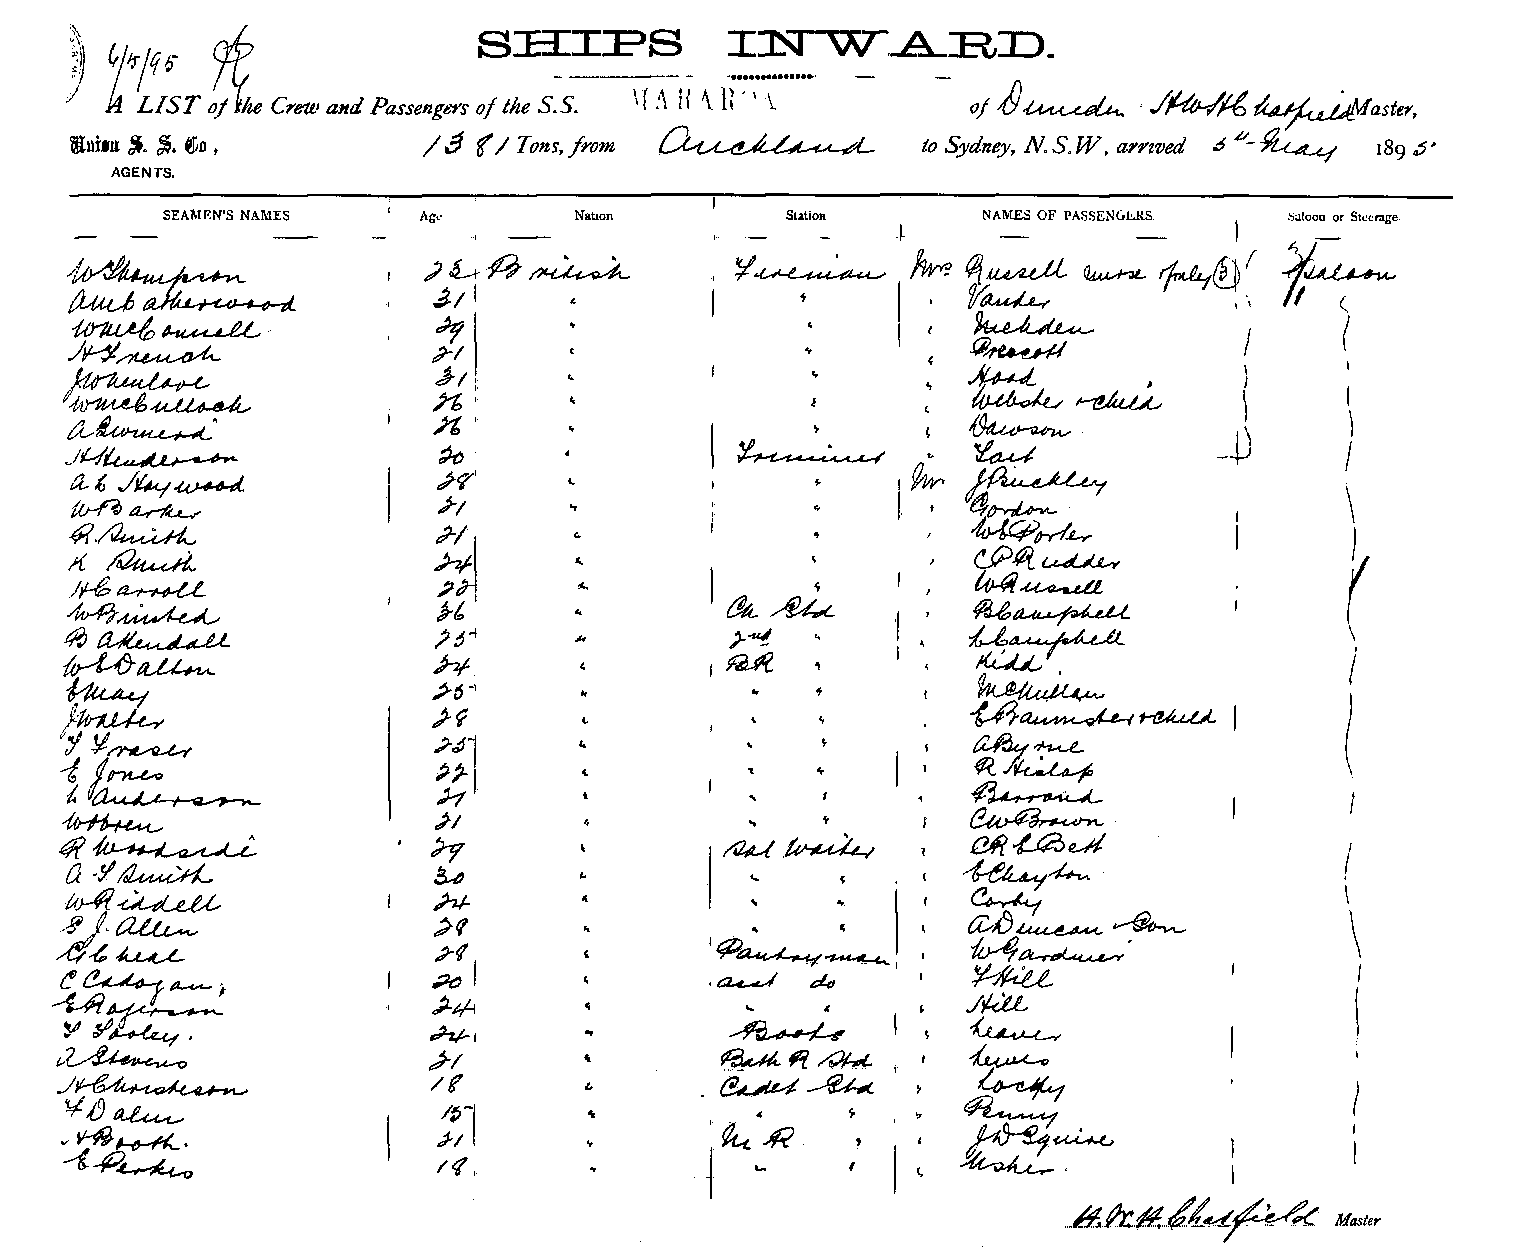 SHIPS INWARD.
6/5/95
A LIST of the Crew and Passengers of the S.S. MARAROA of Dunedin H W H Chatfield Master,
Union S. S. Co, 1381 Tons, from Auckland to Sydney, N.S.W, arrived 5th May 1895
AGENTS.
SEAMEN'S NAMES Age Nation Station NAMES OF PASSENGERS. Saloon or Steerage
W Thompson 22 British Fireman Mrs Russell nurse (3) Saloon
A McCatherwood 31 " " " Vander
W McConnell 29 " " "
H French 21 " " " Prescott
31 " " " Hood
W McCulloch 26 " " " Webster + child
26 " " " Dawson
H Henderson 20 " Trimmer "
A L Haywood 28 " " Mr J Buckley
W Barker 21 " " " Gordon
R Smith 21 " " " W E Porter
K Smith 24 " " " C P Rudder
H Carroll 22 " " " W Russell
W Binsted 36 " Ch Std " B Campbell
B A Kendall 25 " 2nd " " C Campbell
W E Dalton 24 " BR " " Kidd
E May 25 " " " " McMillan
J Walter 28 " " " " E Bannister + child
T Fraser 25 " " " " A Byrne
E Jones 22 " " " " R Hislop
L Anderson 21 " " " " Barraud
W Obren 21 " " " " C W Brown
R Woodside 29 " Sal Waiter " C R C Bett
A T Smith 30 " " " " E Chaytor
W Riddell 24 " " " " Corby
S J. Allen 28 " " " " A Duncan + Son
G Cheal 28 " Pantryman " W Gardner
C Cadogan, 20 " asst do " F Hill
E Rogerson 24 " " " " Hill
T Tooley. 24 " Boots " Leaver
A Stevens 21 " Bath R Std " Lewis
H Christeson 18 " Cadet Std "
15 " " " " Penny
A Booth. 21 " M R " " J D Squire
E Perkes 18 " " " " Usher
H.W.H. Chatfield Master